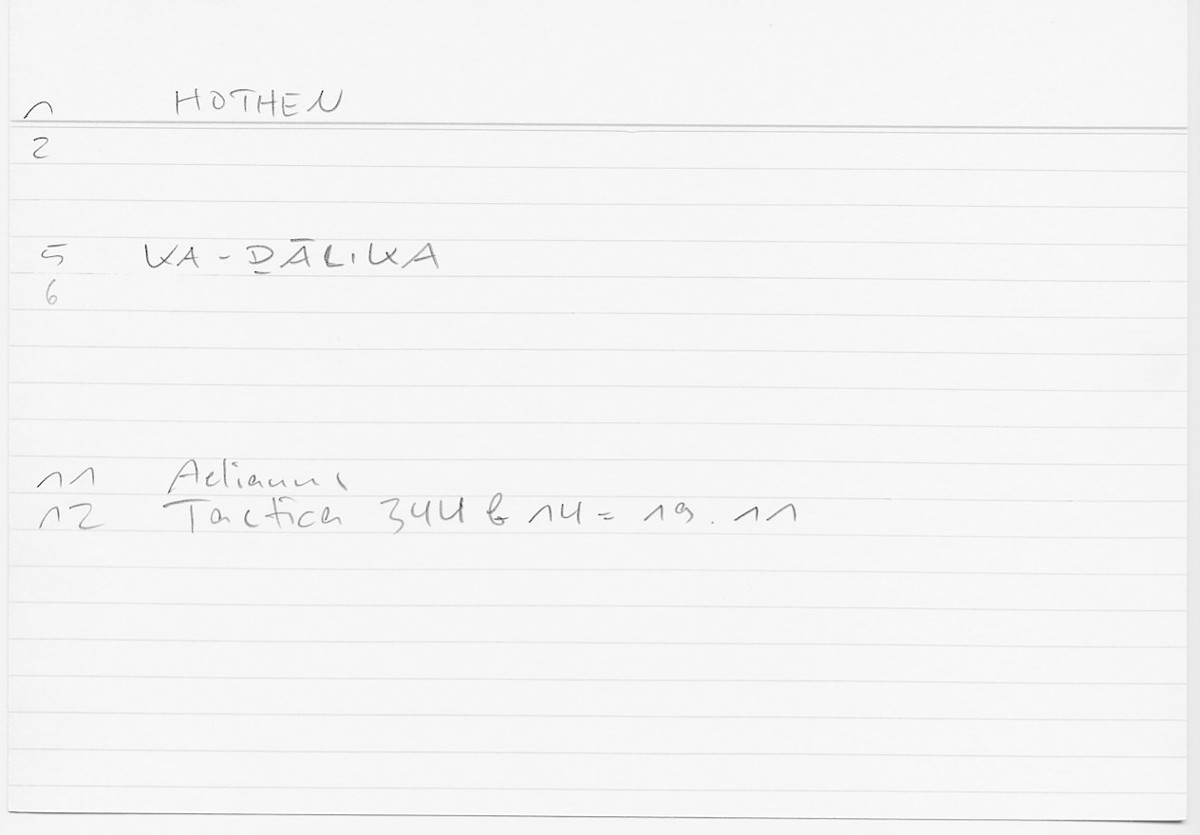 1 HOTHEN
2
5 KA-ḎĀLIKA
6
11 Aelianus
12 Tactica 344 b 14 = 19.11